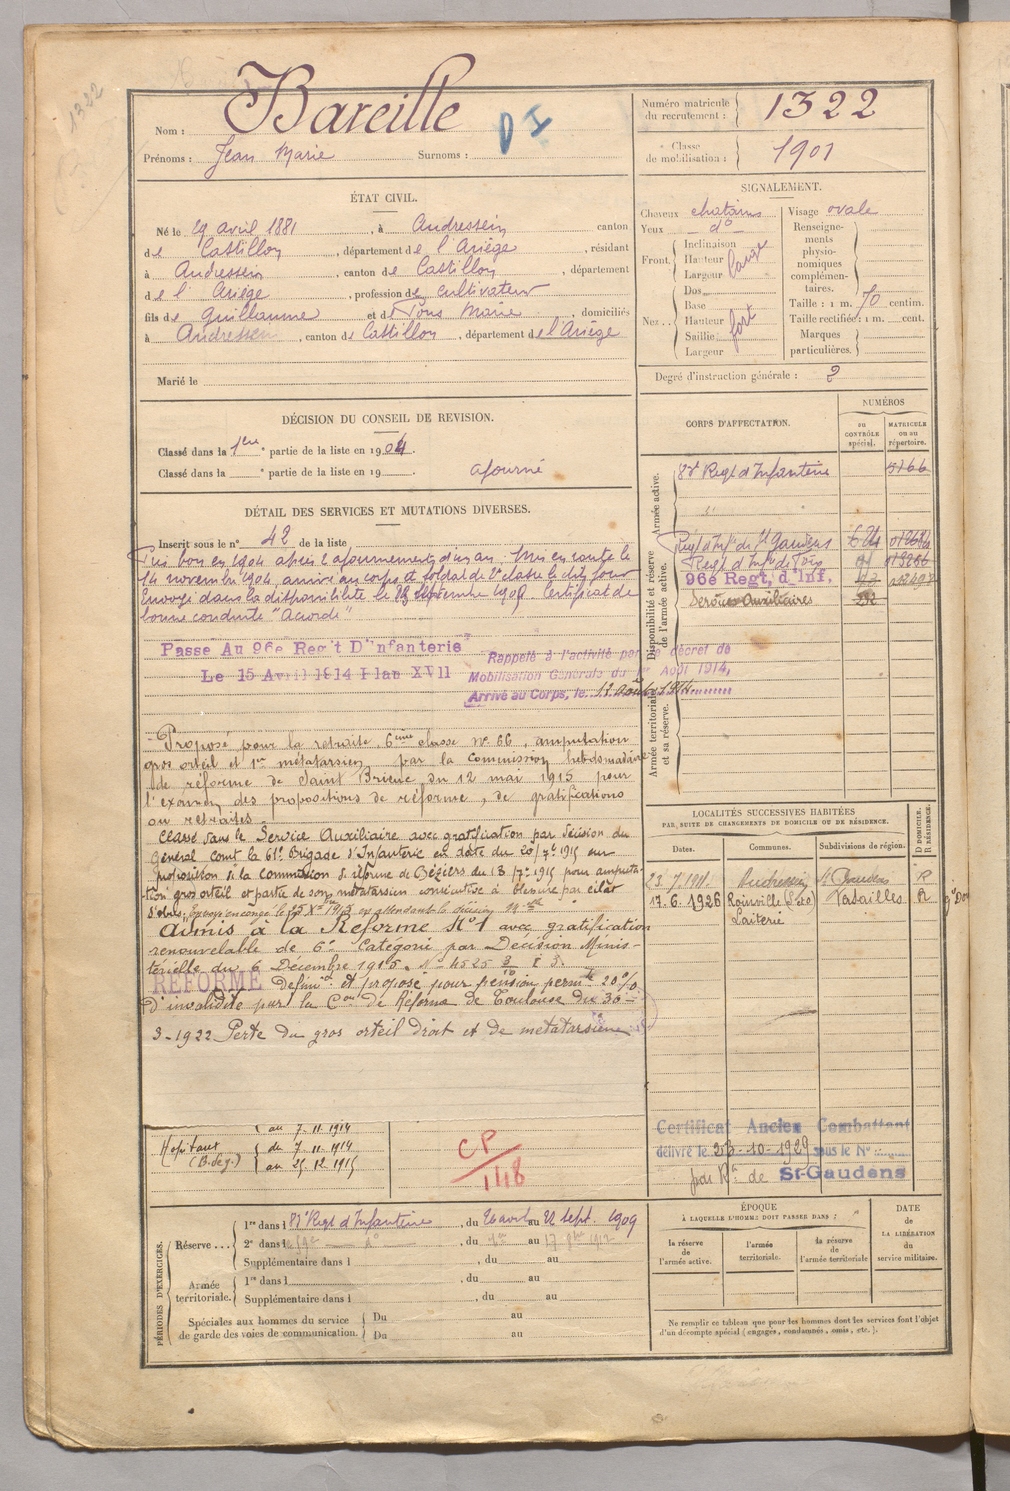 1322
Nom : Bareille
Prénoms : Jean Marie Surnoms :
Numéro matricule du recrutement : 1322
Classe de mobilisation : 1901
ÉTAT CIVIL.
Né le 29 avril 1881, à Andressein canton
de Castillon, département de l'Ariège, résidant
à Andressein, canton de Castillon, département
de l'Ariège, profession de cultivateur
fils de Guillaume et de Pons Marie, domiciliés
à Andressein, canton de Castillon, département de l'Ariège
Marié le
SIGNALEMENT.
Cheveux chatains
Yeux do
Front. Inclinaison
Hauteur
Largeur
Nez. Dos
Base
Hauteur
Saillie
Largeur
fort
Visage ovale
Renseignements physionomiques complémentaires.
Taille : 1 m. 70 centim.
Taille rectifiée : 1 m. cent.
Marques particulières.
Degré d'instruction générale : 2
DÉCISION DU CONSEIL DE REVISION.
Classé dans la 1ere partie de la liste en 1904.
Classé dans la e partie de la liste en 19 . ajourné
DÉTAIL DES SERVICES ET MUTATIONS DIVERSES.
Inscrit sous le n° 42 de la liste
Pris bon en 1904 après l'ajournement d'un an. Mis en route le
14 novembre 1904, arrivé au corps et soldat de 2e classe le dit jour
Envoyé dans la disponibilité le septembre 190 Certificat de
bonne conduite "Accordé"
Passé Au 96e Reg't D'Infanterie
Le 15 Avril 1914 Plan XVII
Rappelé à l'activité par le décret de
Mobilisation Générale du 1er Août 1914,
Arrivé au Corps, le 12 Août 1914
Proposé pour la retraite 6ème classe n° 66, amputation
gros orteil et 1er métatarsien par la commission hebdomadaire
de réforme de Saint Brieuc du 12 mai 1915 pour
l'examen des propositions de réforme, de gratifications
ou retraites.
Classé dans le Service Auxiliaire avec gratification par décision du
Général comt la 61e Brigade d'Infanterie en date du 20/7e 1915 sur
proposition de la commission de réforme de Béziers du 13/7e 1915 pour amputa-
tion gros orteil et partie de son métatarsien consécutive à blessure par éclat
d'obus. en attendant la décision
Admis à la Réforme N°1 avec gratification
renouvelable de 6e Catégorie par Décision Minis-
térielle du 6 Décembre 1915. N° 4525
RÉFORMÉ Définit et proposé pour pension permte 20%
d'invalidité par la Con de Réforme de Toulouse du 30-
3-1922 Perte du gros orteil droit et de métatarsiens
Hopitaux (B. de g.)
au 7.11.1914
du 7.11.1914
au 25.12.1915
CP
148
CORPS D'AFFECTATION.
NUMÉROS
AU CONTRÔLE spécial.
MATRICULE ou au répertoire.
Armée active.
Disponibilité et réserve de l'armée active.
Armée territoriale et sa réserve.
Regt d'Infanterie 5166
Regt d'Infie de St Gaudens
Regt d'Infie de Foix
96e Regt, d'Inf.
Services Auxiliaires
LOCALITÉS SUCCESSIVES HABITÉES
PAR SUITE DE CHANGEMENTS DE DOMICILE OU DE RÉSIDENCE.
Dates. Communes. Subdivisions de région. D DOMICILE. R RÉSIDENCE.
23.7.1911. Andressein St Gaudens R
17.6.1926 Roinville (S&O) Versailles R
Laiterie
Certificat Ancien Combattant
délivré le 23-10-1929 sous le N°
par Rt de St-Gaudens
PÉRIODES D'EXERCICES.
Réserve... 1re dans l Regt d'Infanterie, du avril au 22 sept. 1909
2e dans le 59e do, du au 17 1912
Supplémentaire dans l , du au
Armée territoriale. 1re dans l , du au
Supplémentaire dans l , du au
Spéciales aux hommes du service de garde des voies de communication. Du au
Du au
ÉPOQUE
À LAQUELLE L'HOMME DOIT PASSER DANS :
la réserve de l'armée active.
l'armée territoriale.
la réserve de l'armée territoriale
DATE de LA LIBÉRATION du service militaire.
Ne remplir ce tableau que pour les hommes dont les services font l'objet
d'un décompte spécial (engagés, condamnés, omis, etc.).